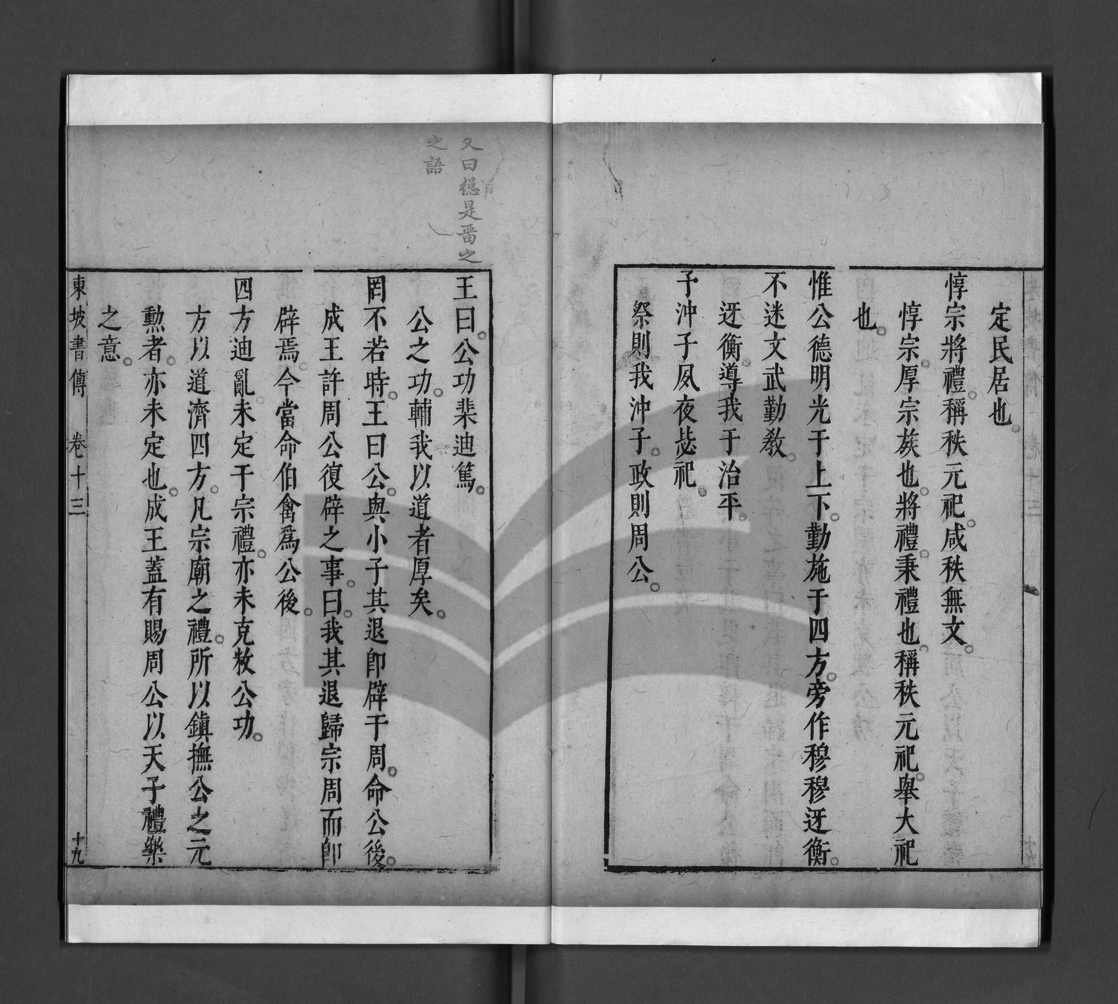 定民居也。
惇宗將禮。稱秩元祀。咸秩無文。
惇宗。厚宗族也。將禮。秉禮也。稱秩元祀。舉大祀
也。
惟公德明光于上下。勤施于四方。旁作穆穆迓衡。
不迷文武勤敎。
迓衡。導我于治平。
予沖子夙夜毖祀。
祭則我沖子。政則周公。
又曰總是晉之
之語
王曰。公功棐迪篤。
公之功。輔我以道者厚矣。
罔不若時。王曰公。與小子其退卽辟于周。命公後。
成王許周公復辟之事。曰。我其退歸宗周而卽
辟焉。今當命伯禽爲公後。
四方迪亂。未定于宗禮。亦未克敉公功。
方以道濟四方。凡宗廟之禮。所以鎭撫公之元
勲者。亦未定也。成王蓋有賜周公以天子禮樂
之意。
東坡書傳 卷十三 十九